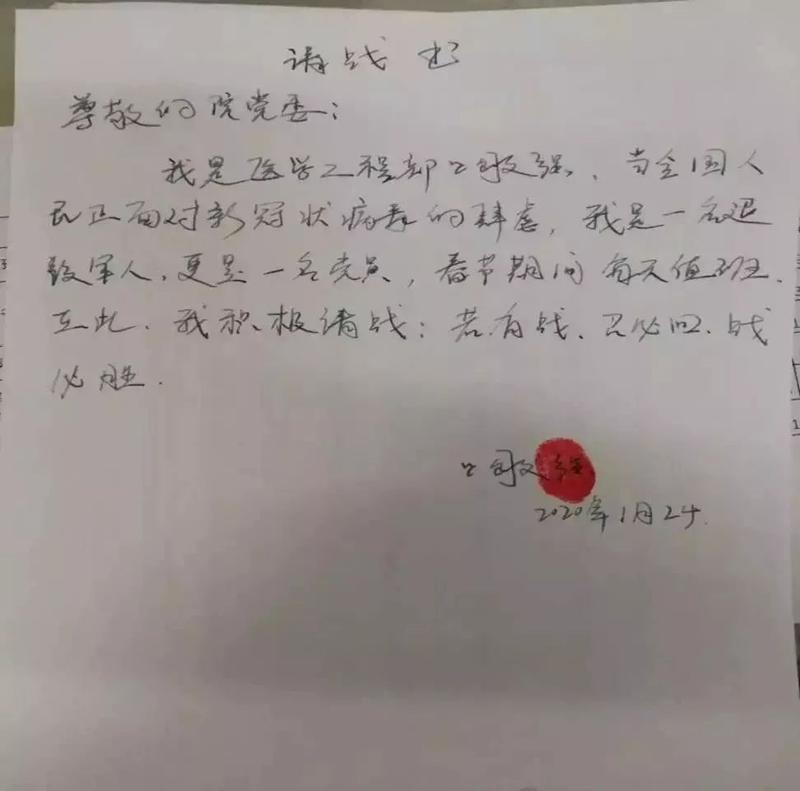 请战书
尊敬的院党委：
我是医学工程部 敬强、当全国人
民正面对新冠状病毒的肆虐，我是一名退
役军人，更是一名党员，春节期间每天值班、
在此、我积极请战：若有战、召必回、战
必胜.
敬强
2020年1月24.